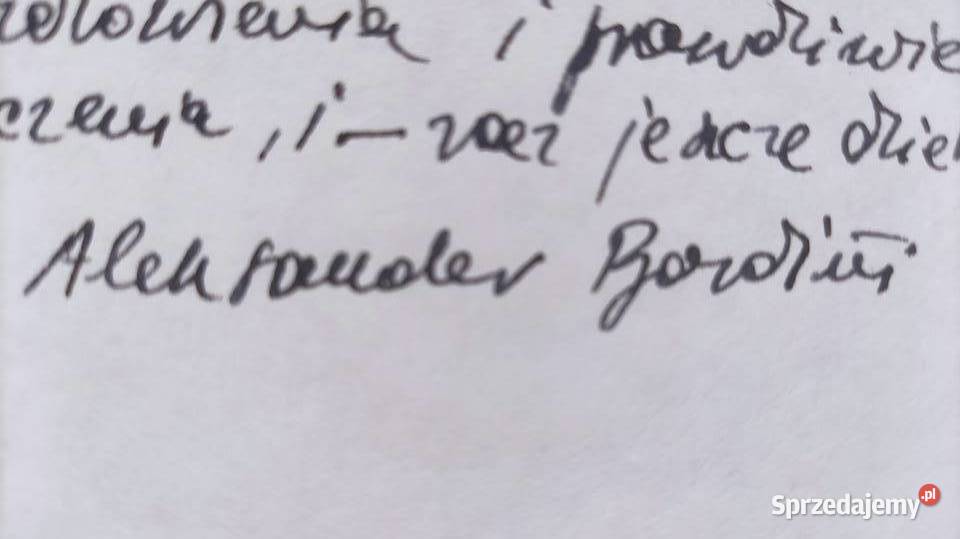 zadowolenia i prawdziwie
czenia, i – raz jeszcze dzię
Aleksander Bardini
Sprzedajemy.pl